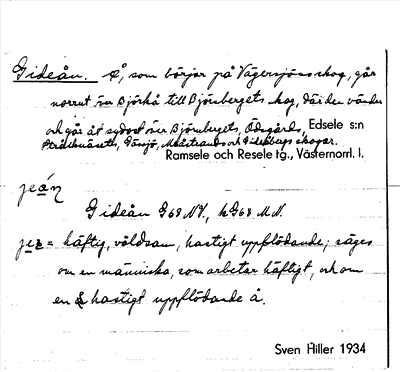 Gideån. Å, som börjar på Vägersjöns skog, går
norrut över Björkå till Björnbergets skog, där den vänder
och går åt sydost över Björnbergets, Ödsgårds, Edsele s:n
Gånsjö, och Gideåbergs skogar.
Ramsele och Resele tg., Västernorrl. l.
Gideån G68 NV., h G68 M.N.
= häftig, våldsam, hastigt uppflödande; säges
om en människa, som arbetar häftigt, och om
en hastigt uppflödande å.
Sven Hiller 1934